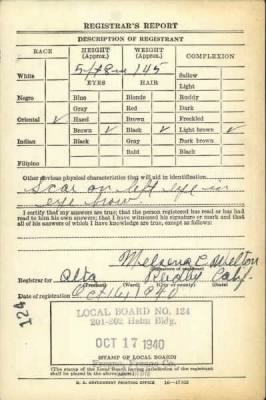 REGISTRAR'S REPORT
DESCRIPTION OF REGISTRANT
RACE HEIGHT (Approx.) WEIGHT (Approx.) COMPLEXION
White 145 Sallow
EYES HAIR Light
Negro Blue Blonde Ruddy
Gray Red Dark
Oriental ✓ Hazel Brown Freckled
Brown ✓ Black ✓ Light brown ✓
Indian Black Gray Dark brown
Bald Black
Filipino
Other obvious physical characteristics that will aid in identification
Scar on left eye in
eye brow.
I certify that my answers are true; that the person registered has read or has had
read to him his own answers; that I have witnessed his signature or mark and that
all of his answers of which I have knowledge are true, except as follows:
Melton
(Signature of registrar)
Registrar for Alta Reedley Calif.
(Precinct) (Ward) (City or county) (State)
Date of registration Oct 16, 1940
124
LOCAL BOARD NO. 124
201-202 Helm Bldg.
OCT 17 1940
(STAMP OF LOCAL BOARD)
Fresno, Fresno Co.
(The stamp of the Local Board having jurisdiction of the registrant
shall be placed in the above space.)
U. S. GOVERNMENT PRINTING OFFICE 16—17105